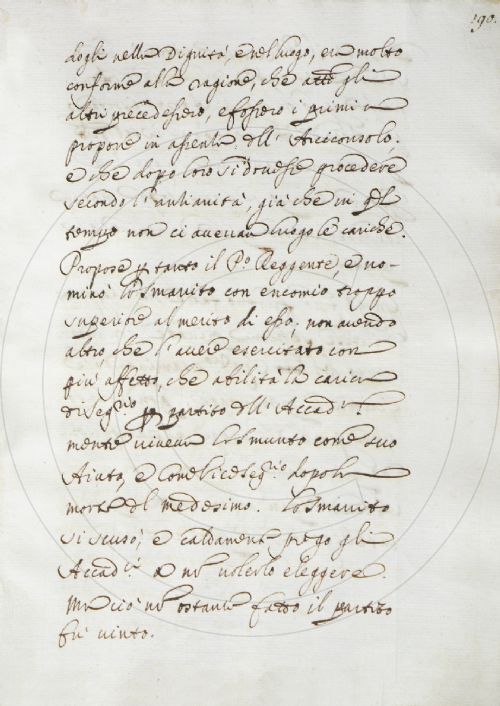 190.
dogli nella Dignità, e nel luogo, era molto
conforme alla ragione, che gli
altri precedessero, e fossero i primi a
proporre in assente dell' Arciconsolo.
e che dopo loro si dovesse procedere
secondo l'anzianità, già che in ql
tempo non ci avevan luogo le cariche.
Propose p tanto il Po. Reggente, e no-
minò lo Smarrito con encomio troppo
superiore al merito di esso, non avendo
altro, che l'avere esercitato con
più affetto, che abilità la carica
di Segrio p partito dell' Accada.
mentre viveva lo come suo
Aiuto, e Come Vicesegrio dopo la
morte del medesimo. Lo Smarrito
si scusò, e caldamente prego gli
Accadci. a no volerlo eleggere.
Ma ciò no ostante fatto il partito
fù vinto.